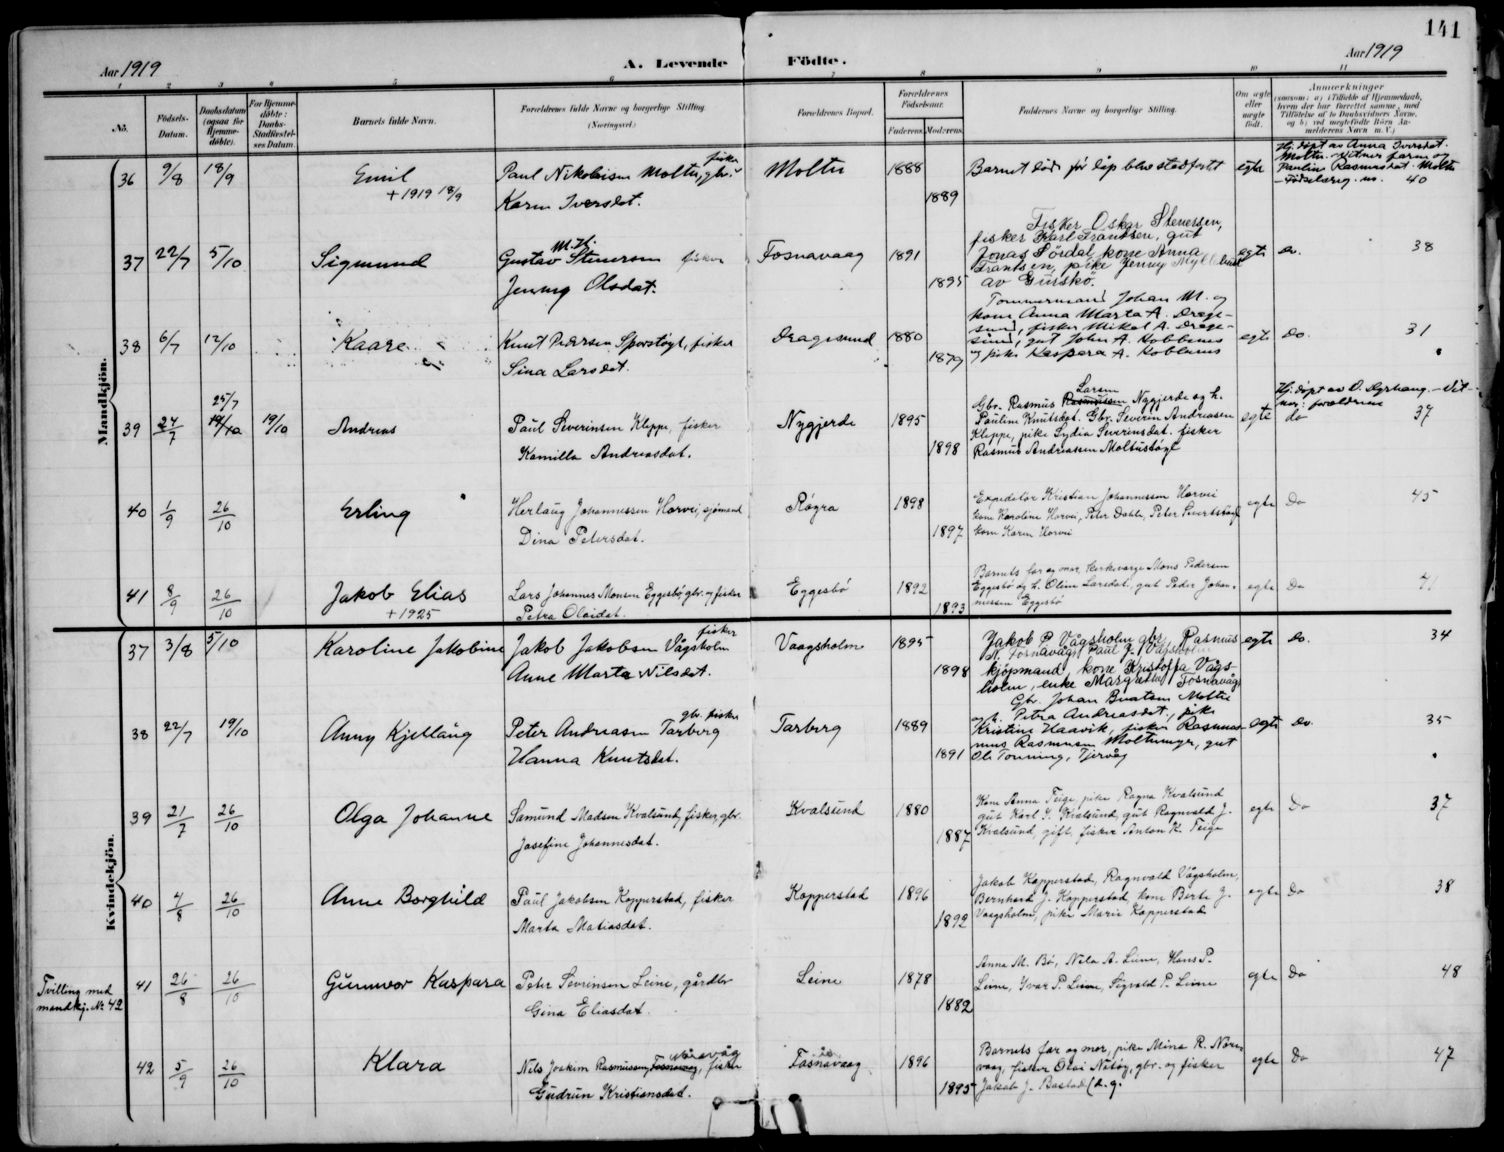 141
Aar 1919
A. Levende
Födte.
Aar 1919
1 2 3 4 5 6 7 8 9 10 11
No.
Födsels-Datum.
Daabsdatum (ogsaa for Hjemme-døbte).
For Hjemme-døbte: Daabs-Stadfæstel-ses Datum.
Barnets fulde Navn.
Forældrenes fulde Navne og borgerlige Stilling.
(Næringsvei.)
Forældrenes Bopæl.
Forældrenes Födselsaar.
Faderens. Moderens.
Faddernes Navne og borgerlige Stilling.
Om ægte eller uægte födt.
Anmærkninger
Mandkjön.
36 9/8 18/9 Emil Paul Nikolaisen Moltu, gbr. fisker Moltu 1888 Barnet død før dåp blev stadfestet egte Hj. døpt av Anna Iversdat.
+ 1919 18/9 Karen Iversdat. 1889
Moltu. Vitner faren og
Pauline Rasmusdat. Moltu
40
37 22/7 5/10 Sigmund Gustav M. H. Stenersen fisker Fosnavaag 1891 egte do. 38
Jenny Olsdat. 1895
Fisker Oskar Stenersen,
fisker Karl Frantsen, gut
Jonas Sördal, kone Anna
Frantsen, pike Jenny
av Gurskø.
38 6/7 12/10 Kaare Knut Pedersen fisker Dragesund 1880 egte do. 31
Sina Larsdat. 1879
Tømmermand Johan M. og
kone Anna Marta A. Drage-
sund, fisker Mikal A. Drage-
sund, gut John A. Kobbenes
og pike Kaspara A. Koblenes
39 24/7 25/7 19/10 19/10 Andreas Paul Severinsen Kleppe, fisker Nygjerde 1895 egte do 37
Kamilla Andreasdat. 1898
Gbr. Rasmus Larsen Nygjerde og h.
Pauline Knutsdat. Gbr. Severin Andreasen
Kleppe, pike Lydia Severinsdat. fisker
Rasmus Andreassen Moltustøyl
Hj. døpt av O. Dyrhaug. – Vit-
ner: forældrene
40 1/9 26/10 Erling Herlaug Johannessen Horvei, sjømand Røyra 1898 egte Do 45
Dina Petersdat. 1897
Expeditør Kristian Johannessen Horvei
kone Karoline Horvei, Peter Dahle, Peter
kone Karen Horvei
41 8/9 26/10 Jakob Elias Lars Johannes Monsen Eggesbø gbr. og fisker Eggesbø 1892 egte Do 41
+ 1925 Petra Olaidat. 1893
Barnets far og mor, kirkeverge Mons Pedersen
Eggesbø og h. Oline Larsdat, gut Peder Johan-
nessen Eggesbø
Kvindekjön.
37 3/8 5/10 Karoline Jakobine Jakob Jakobsen Vågsholm fisker Vaagsholm 1895 egte do. 34
Anne Marta Nilsdat. 1898
Jakob P. Vågsholm gbr, Rasmus
N. Fosnavåg, Paul J. Vågsholm
kjøpmand, kone Kristoffa Vågs-
holm, enke Margretha Fosnavåg
38 22/7 19/10 Anny Kjellaug Peter Andreasen Tarberg gbr. fisker Tarberg 1889 egte do. 35
Hanna Knutsdat. 1891
Gbr. Johan Moltu
og h. Petra Andreasdat, pike
Kristine Haavik, fisker Rasmus
Rasmusen Moltumyr, gut
Ole Tonning, Tjervåg
39 21/7 26/10 Olga Johanne Samund Madsen Kvalsund, fisker, gbr. Kvalsund 1880 egte Do 37
Josefine Johannesdat. 1887
Kone Anna Teige, pike Ragna Kvalsund
gut Karl S. Kvalsund, gut Ragnvald J.
Kvalsund, gift, fisker Anton K. Teige
40 4/8 26/10 Anne Borghild Paul Jakobsen Kopperstad, fisker Kopperstad 1896 egte Do 38
Marta Matiasdat. 1892
Jakob Kopperstad, Ragnvald Vågsholm,
Bernhard J. Kopperstad, kone Berte J.
Vaagsholm, pike Marie Kopperstad
Tvilling med
mandkj. Nr 42
41 26/8 26/10 Gunnvor Kaspara Peter Sevrinsen Leine, gårdbr Leine 1878 egte Do 48
Gina Eliasdat. 1882
Anna M. Bø, Nils A. Leine, Hans P.
Leine, Ivar P. Leine, Sigvald P. Leine
42 5/9 26/10 Klara Nils Joakim Rasmussen Fosnavaag, Nåvåg fisker Fosnavaag 1896 egte Do 47
Gudrun Kristiansdat. 1895
Barnets far og mor, pike Mina R. Nøre-
vaag, fisker Olai Nitøy, gbr. og fisker
Jakob J. Bostad